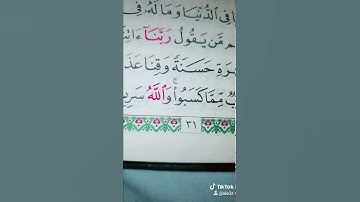 فِي ٱلدُّنۡيَا وَمَا لَهُۥ فِي
مَّن يَقُولُ رَبَّنَآ ءَاتِنَا
حَسَنَةٗ وَقِنَا عَذَ
مِّمَّا كَسَبُواْۚ وَٱللَّهُ سَرِي
٣١
TikTok